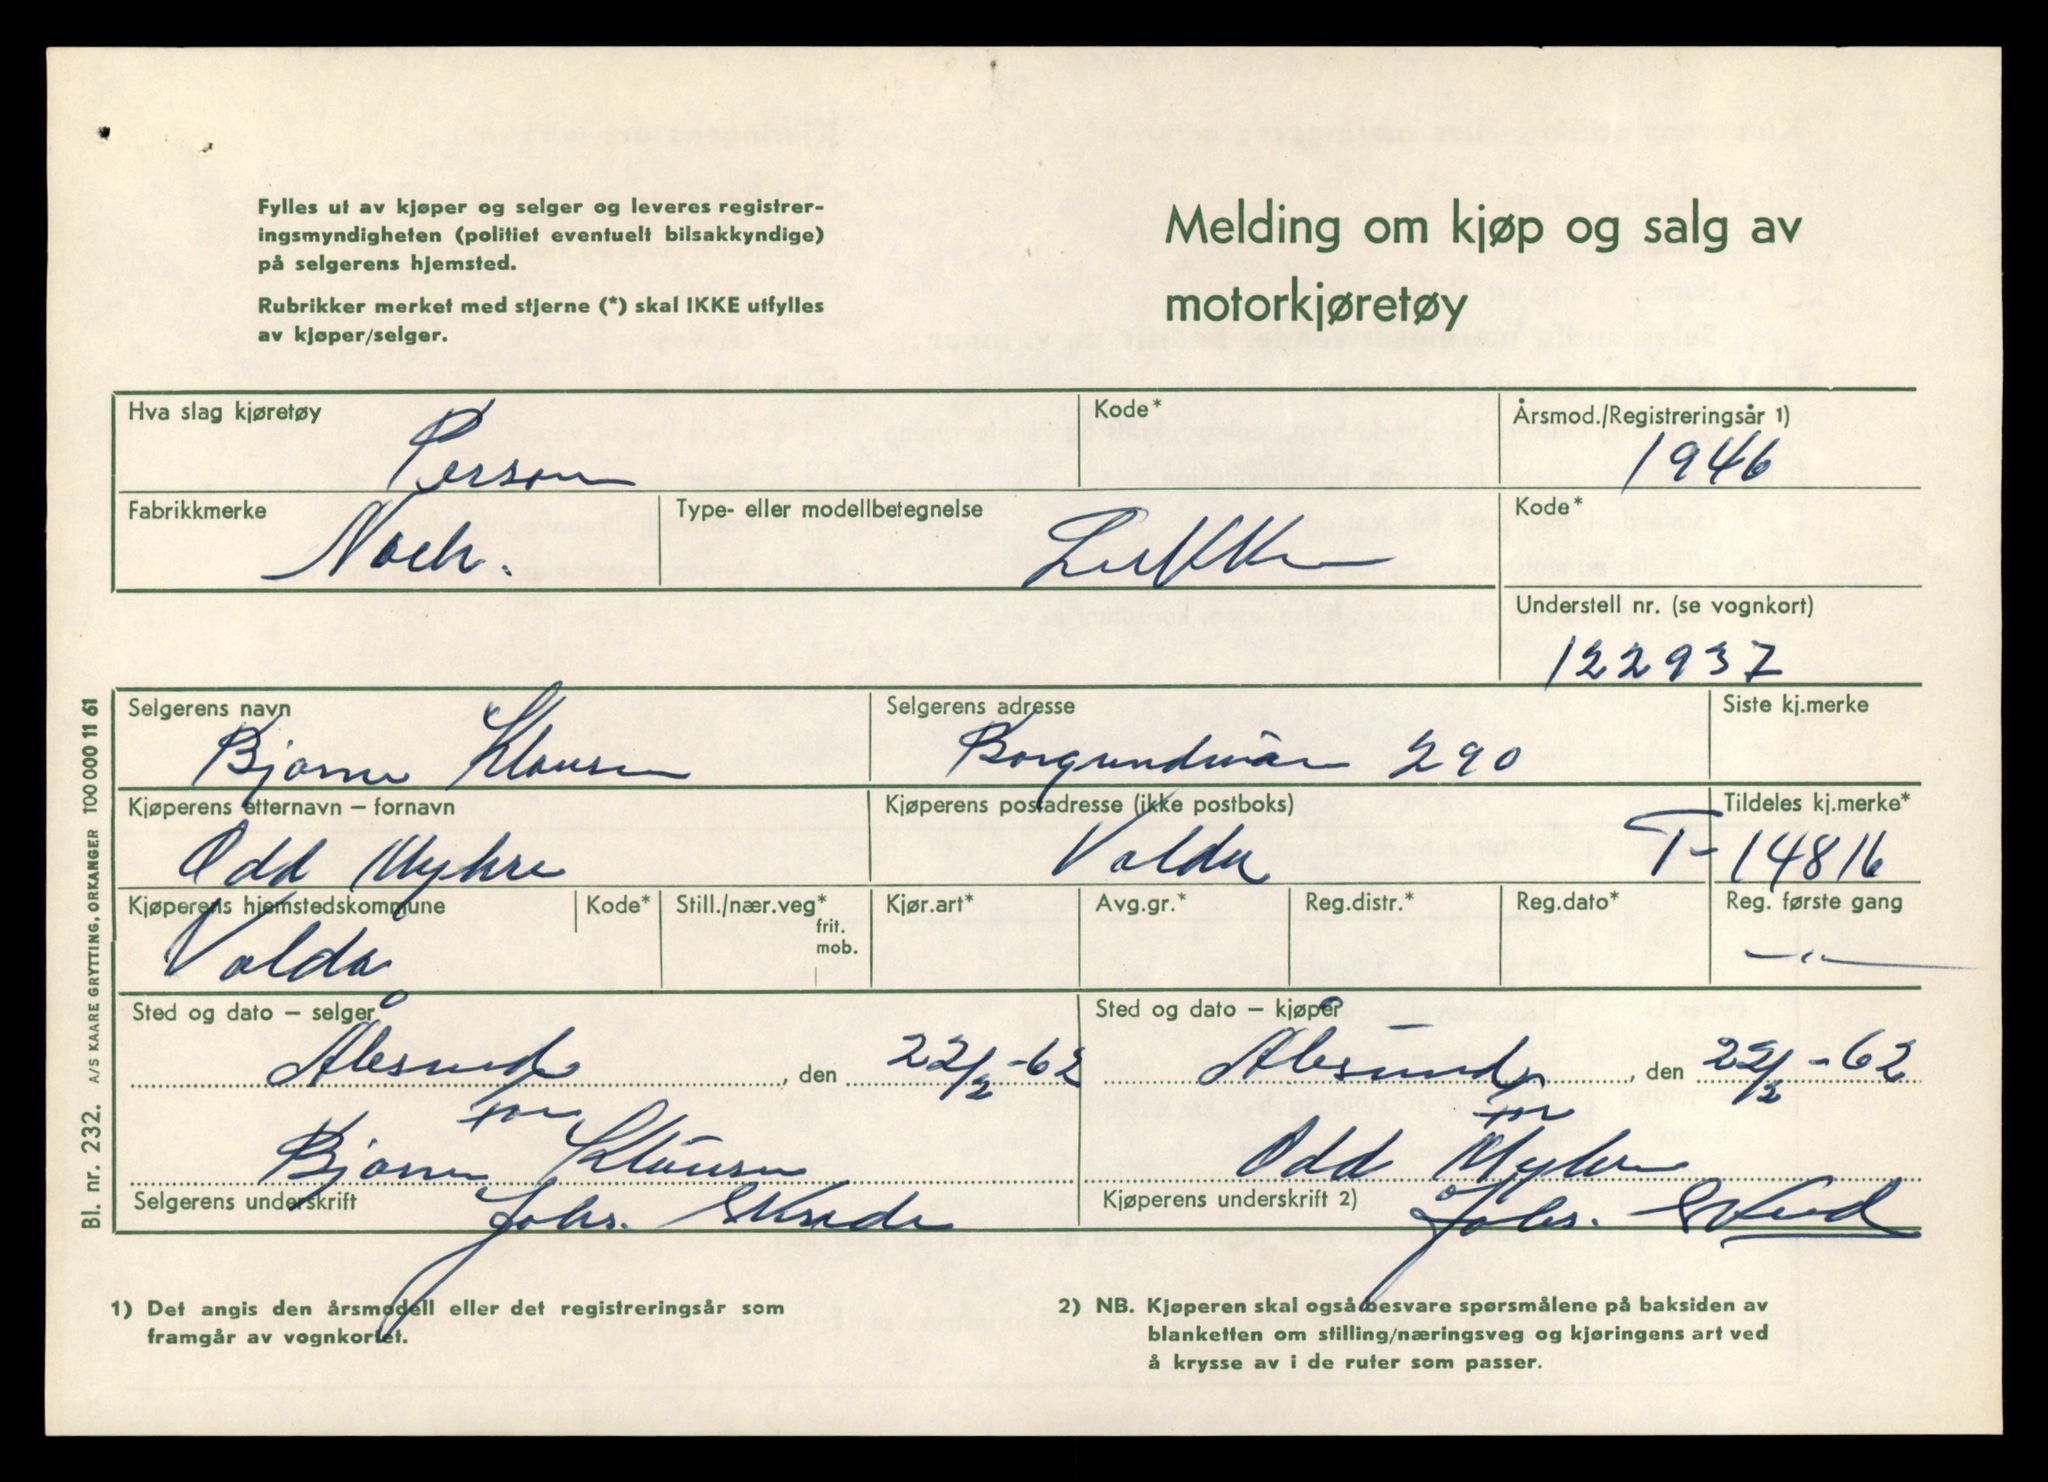 Fylles ut av kjøper og selger og leveres registrer-
ingsmyndigheten (politiet eventuelt bilsakkyndige)
på selgerens hjemsted.
Rubrikker merket med stjerne (*) skal IKKE utfylles
av kjøper/selger.
Melding om kjøp og salg av
motorkjøretøy
Hva slag kjøretøy
Person
Kode*
Årsmod./Registreringsår 1)
1946
Fabrikkmerke
Nach.
Type- eller modellbetegnelse
Lukken
Kode*
Understell nr. (se vognkort)
122937
Selgerens navn
Bjarne Klausen
Selgerens adresse
290
Siste kj.merke
Kjøperens etternavn – fornavn
Odd Myhre
Kjøperens postadresse (ikke postboks)
Volda
Tildeles kj.merke*
T-14816
Kjøperens hjemstedskommune
Volda
Kode*
Still./nær.veg*
frit.
mob.
Kjør.art*
Avg.gr.*
Reg.distr.*
Reg.dato*
Reg. første gang
—"—
Sted og dato – selger
Ålesund, den 22/2-62
for
Bjarne Klausen
Selgerens underskrift
Johs.
Sted og dato – kjøper
Ålesund, den 22/2-62
for
Odd Myhre
Kjøperens underskrift 2)
Johs.
1) Det angis den årsmodell eller det registreringsår som
framgår av vognkortet.
2) NB. Kjøperen skal også besvare spørsmålene på baksiden av
blanketten om stilling/næringsveg og kjøringens art ved
å krysse av i de ruter som passer.
Bl. nr. 232. A/S KAARE GRYTTING, ORKANGER 100 000 11 61